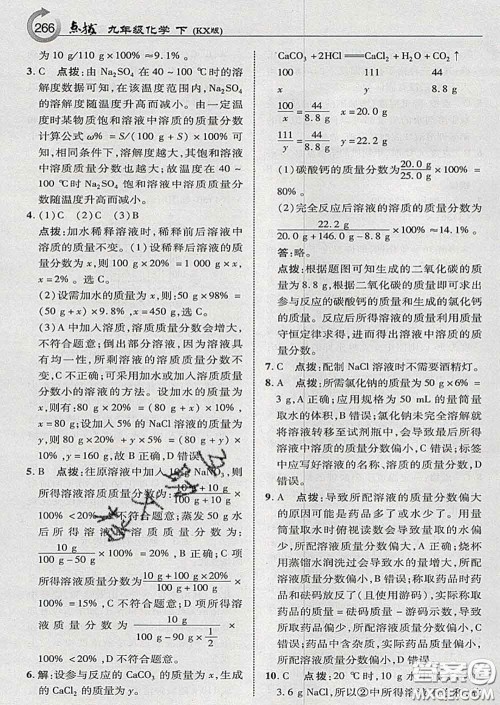 266 点拨 九年级化学 下 (KX版)
为 10 g/110 g×100% ≈9.1%。
3. C 点拨：由 Na₂SO₄ 在 40～100 ℃时的溶
解度数据可知，在该温度范围内，Na₂SO₄
的溶解度随温度升高而减小。由一定温
度时某物质饱和溶液中溶质的质量分数
计算公式 ω% = S/(100 g + S) × 100%可
知，相同条件下，溶解度越大，其饱和溶液
中溶质质量分数也越大；故温度在 40～
100 ℃时 Na₂SO₄ 饱和溶液中溶质质量分
数随温度升高而减小。
4. (1)C (2)C (3)B
点拨：加水稀释溶液时，稀释前后溶液中溶
质的质量不变。(1)设稀释前溶质质量分数
为 x，则 180 g×20% = (1 000 g)x，
x = 。选 C。
(2)设需加水的质量为 x，则 50 g×98% =
(50 g + x)×9.8%，x = 450 g，选 C。
(3)A 中加入溶质，溶质质量分数会增大，
不符合题意；倒出部分溶液，因溶液具
有均一性，所剩溶液的溶质质量分数不
变，C 不正确；可采用加水或加入溶质质量分
数小的溶液的方法。设加水的质量为
x，则有：80 g×20% = (80 g + x)×10%，
x = 80 g；设加入 5%的 NaCl 溶液的质量为
y，则有：80 g×20% + y×5% = (80 g + y)×
10%，y = 160 g，故 B 正确，D 错误。
5. B 点拨：往原溶液中加入 10 g NaNO₃，则
所得溶液溶质质量分数为：(10 g + 10 g)/(100 g + 10 g) ×
100% <20%，A 不符合题意；蒸发 50 g 水
后所得溶液溶质质量分数为：
10 g/(100 g − 50 g) ×100% = 20%，B 正确；C 项
所得溶液质量分数为 (10 g + 100 g×20%)/(100 g + 100 g) ×
100% = 15%，C 不符合题意；D 项所得溶液
质量分数为 10 g/(100 g − 90 g×1/2) ×
100% <20%，D 不符合题意。
6. 解：设参与反应的 CaCO₃ 的质量为 x，生成
的 CaCl₂ 的质量为 y。
CaCO₃ + 2HCl ═══ CaCl₂ + CO₂↑ + H₂O
100 111 44
x y 8.8 g
100/x = 44/8.8 g x = 20.0 g
111/y = 44/8.8 g y = 22.2 g
(1)碳酸钙的质量分数为 20.0 g/25.0 g ×100% =
80%。
(2)完全反应后溶液的溶质的质量分数为
22.2 g/(20.0 g + 146.0 g − 8.8 g) ×100% ≈14.1%。
答：略。
点拨：根据题图可知生成的二氧化碳的质
量，根据二氧化碳的质量即可求出
参与反应的碳酸钙的质量和生成的氯化钙
的质量。所得溶液的质量利用质量
守恒定律求得，进而得出溶液中溶质的质
量分数。
7. C 点拨：配制 NaCl 溶液时不需要酒精灯。
8. A 点拨：所需氯化钠的质量为 50 g×6% =
3 g，A 正确；应用规格为 50 mL 的量筒量
取水的体积，B 错误；氯化钠未完全溶解就
将溶液转移至试剂瓶中，会导致最后所得
溶液中溶质的质量分数偏小，C 错误；标签
中应写好溶液的名称、溶质的质量分数，
D 错误。
9. A 点拨：导致所配溶液的质量分数偏大
的原因可能是药品多了或水少了。用量
筒量取水时俯视读数会导致量取的水偏
少，所配溶液质量分数偏大，A 正确；烧杯
用蒸馏水润洗过会导致水偏多，所配溶液
溶质质量分数偏小，B 错误；称取药品时药
品和砝码放反了(且使用游码)，实际称取
药品的质量 = 砝码质量 − 游码示数，导致
所称取的药品质量偏小，质量分数偏小，C 错
误；药品中含杂质，实质药品质量偏小，溶
液质量分数偏小，D 错误。
10. C 点拨：20 ℃时，10 g
3.6 g NaCl，所以②中所得